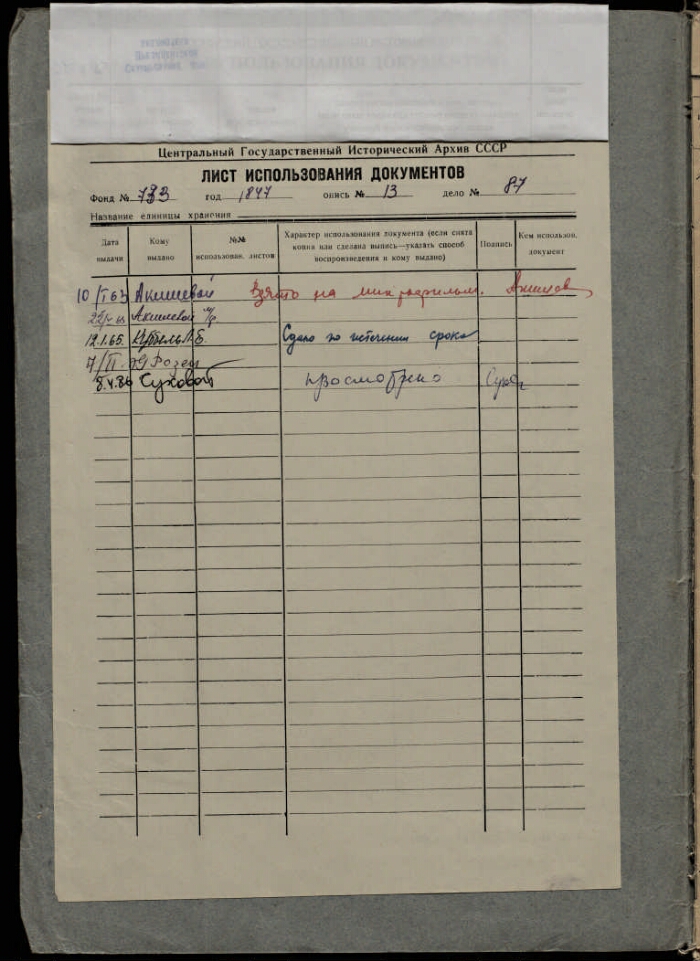 Центральный Государственный Исторический Архив СССР
ЛИСТ ИСПОЛЬЗОВАНИЯ ДОКУМЕНТОВ
Фонд № 733 год 1847 опись № 13 дело № 87
Название единицы хранения
Дата выдачи
Кому выдано
№№ использован. листов
Характер использования документа (если снята копия или сделана выпись—указать способ воспроизведения и кому выдано)
Подпись
Кем использов. документ
10/I 63 Акишевой Взято на микрофильм.
Акишевой
12.1.65. Сдано по истечении срока
8.4.86 Суховой просмотрено